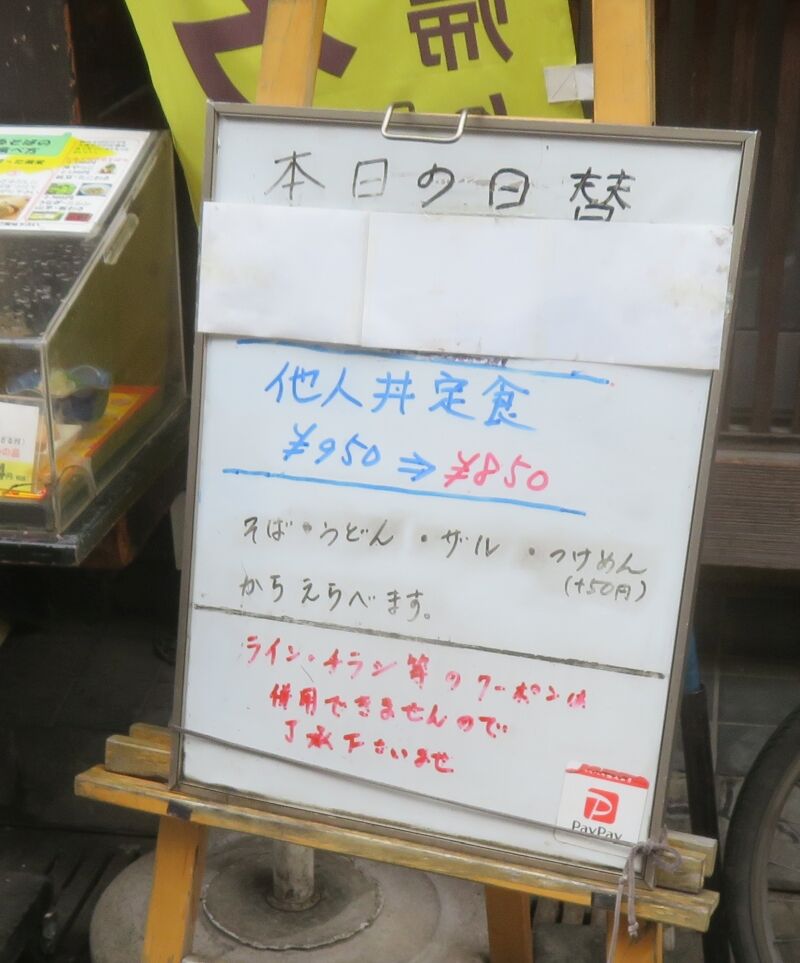 本日の日替
他人丼定食
¥950⇒¥850
そば・うどん・ザル・つけめん
(+50円)
からえらべます。
ライン・チラシ等のクーポンは
併用できませんので
了承下さいませ
PayPay